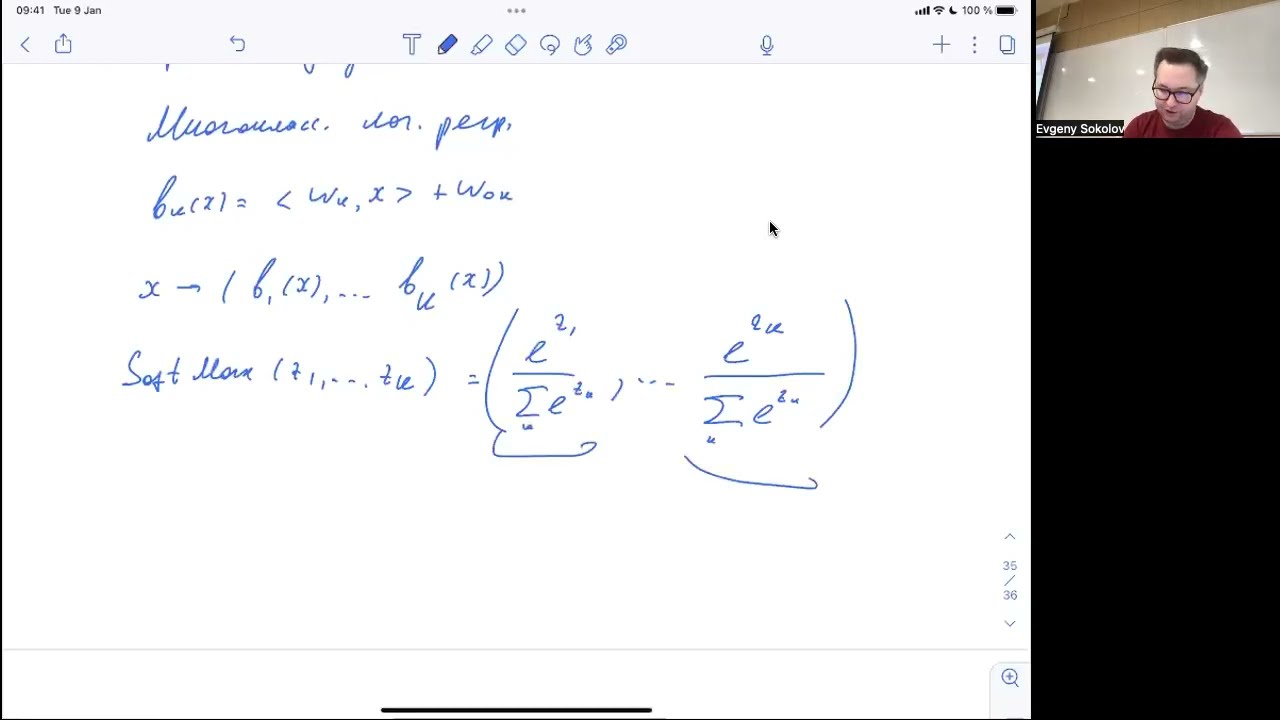 09:41 Tue 9 Jan
100 %
T
Evgeny Sokolov
Многокласс. лог. регр.
b_k(x) = < w_k, x > + w_0k
x → ( b_1(x), ... b_K(x))
SoftMax (z_1, ... z_K) = ( e^{z_1} / Σ_k e^{z_k} , ... e^{z_K} / Σ_k e^{z_k} )
35
/
36